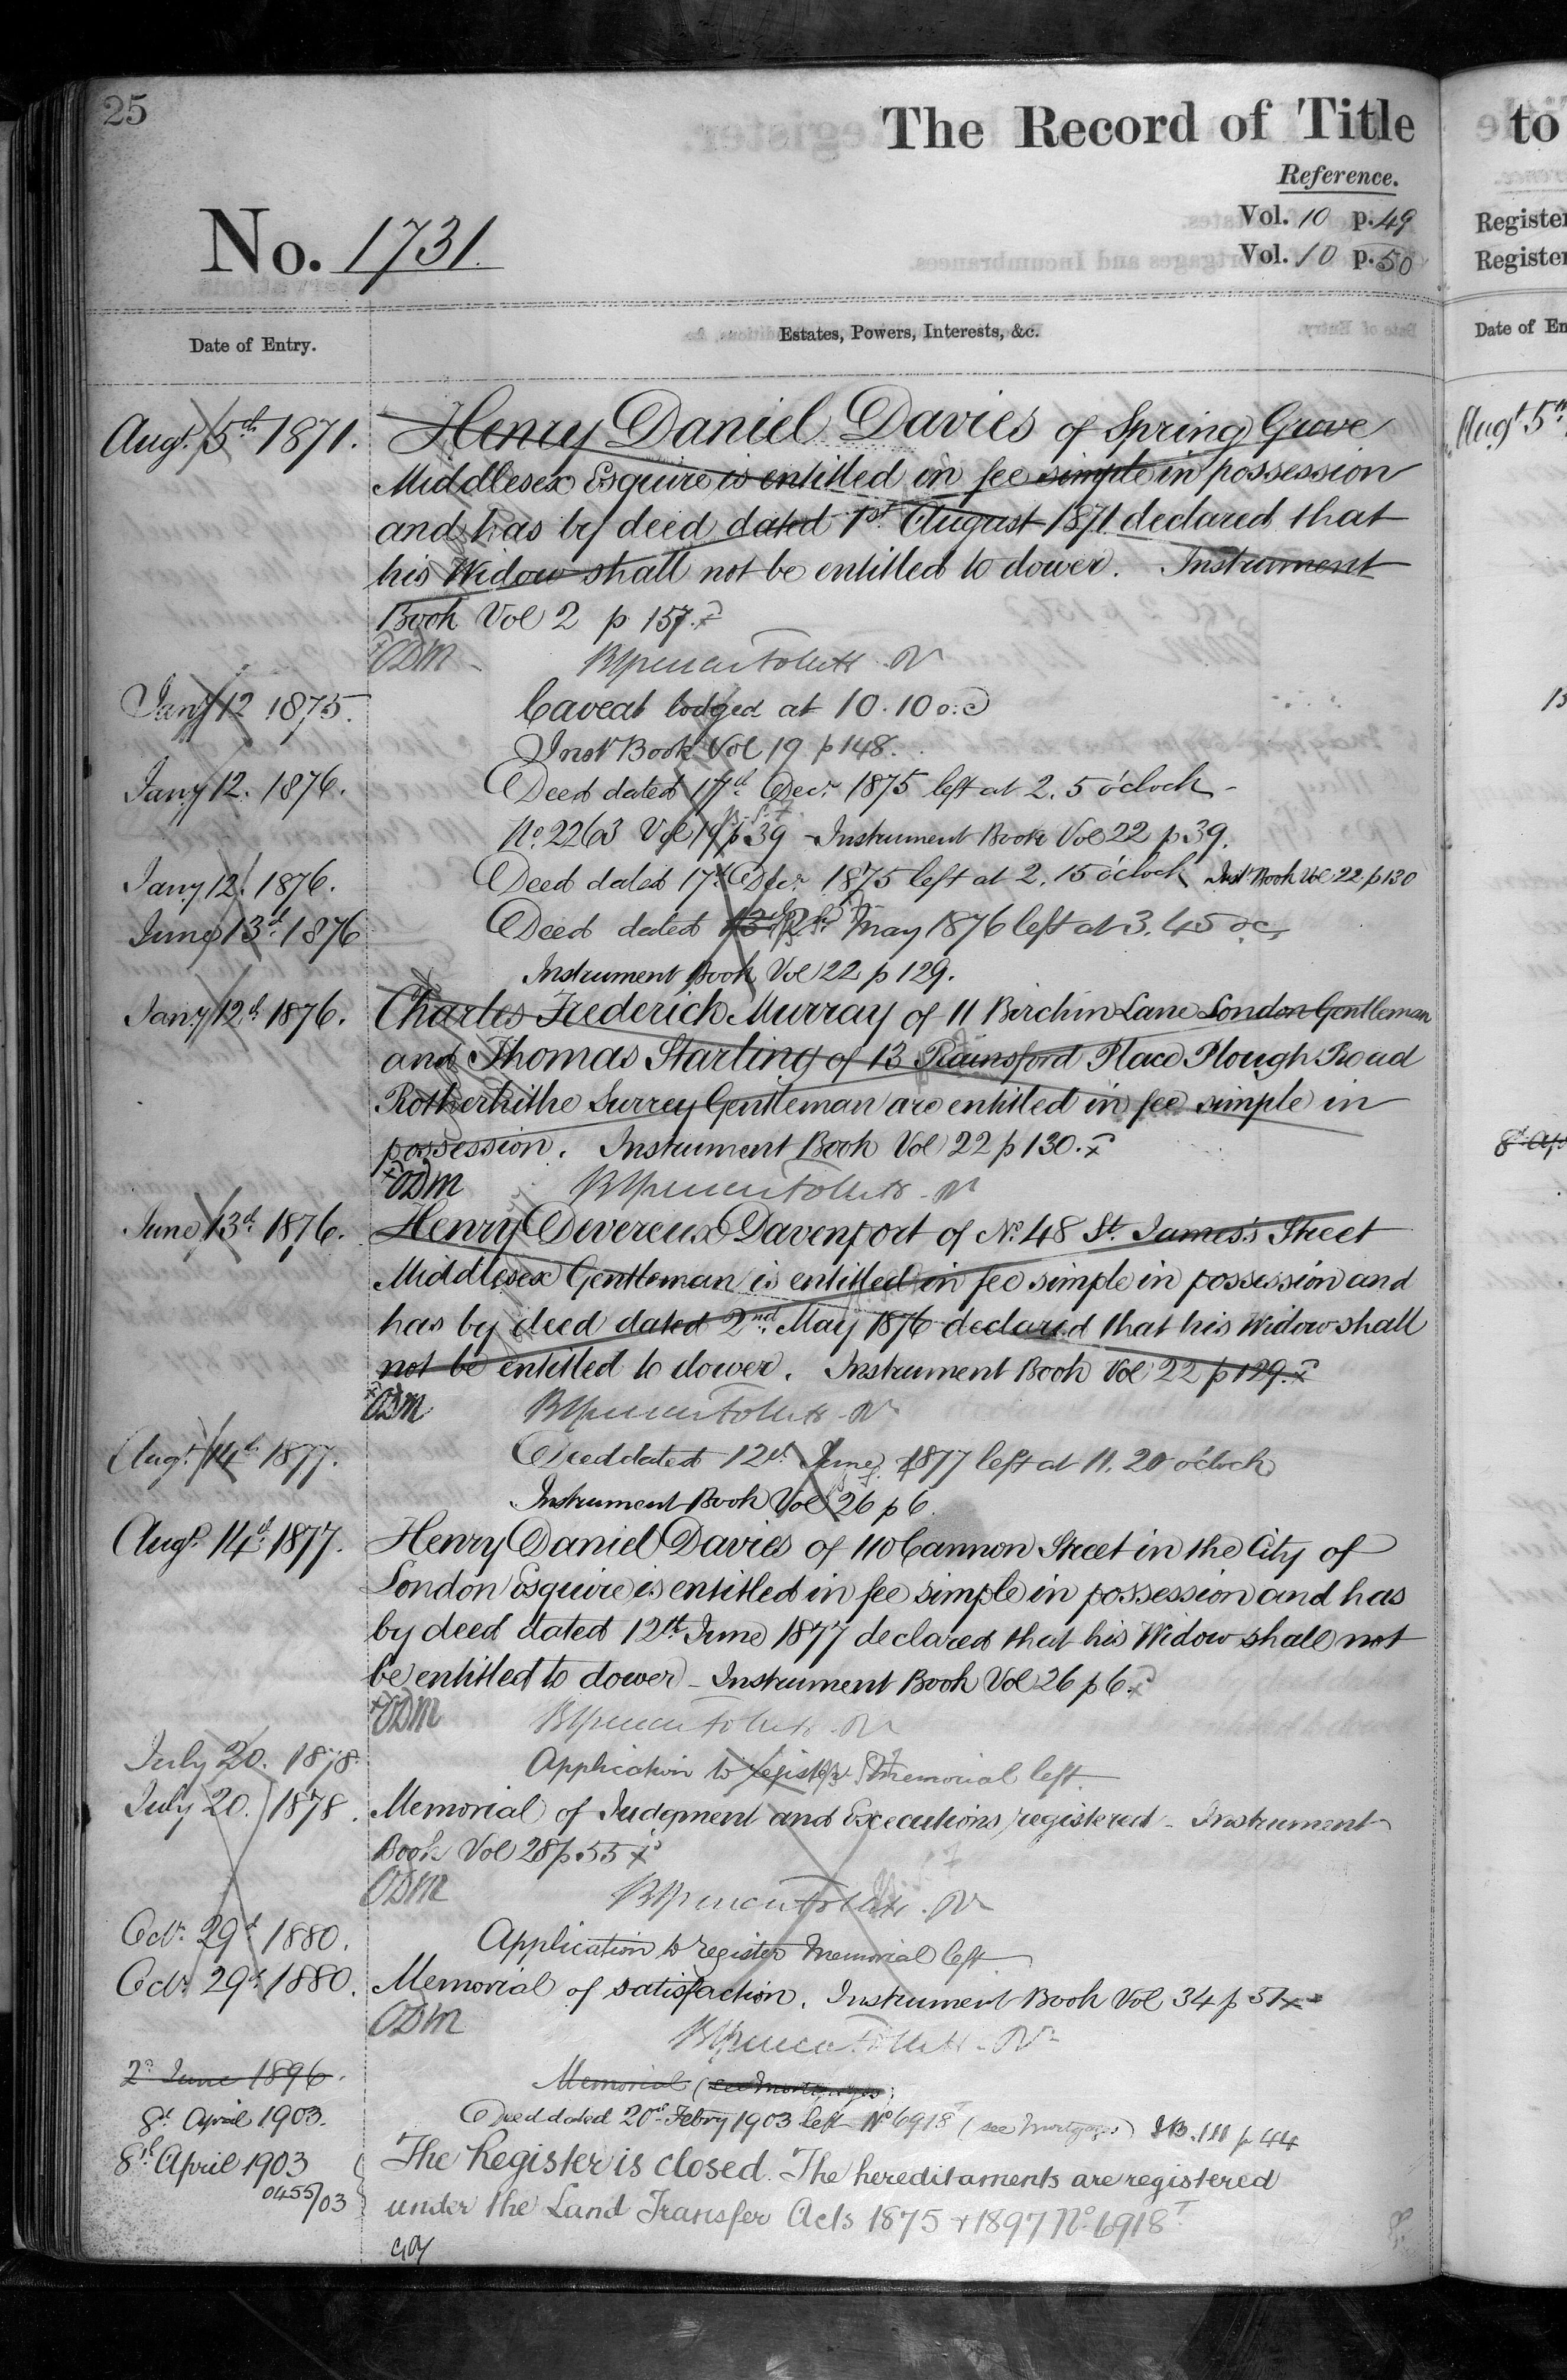 25
The Record of Title
Reference.
Vol. 10 p. 49
Vol. 10 p. 50
No. 1731.
Date of Entry.
Estates, Powers, Interests, &c.
Augt. 5th 1871. Henry Daniel Davies of Spring Grove
Middlesex Esquire is entitled in fee simple in possession
and has by deed dated 1st August 1871 declared that
his Widow shall not be entitled to dower. Instrument
Book Vol 2 p 157.
ODM
Jany 12 1875. Caveat lodged at 10.10 o.c
Inst Book Vol 19 p 148.
Jany 12. 1876. Deed dated 17th Decr. 1875 left at 2.5 o'clock -
No. 2263 Vol 19 p 39 - Instrument Book Vol 22 p 39.
Jany 12. 1876. Deed dated 17th Decr. 1875 left at 2.15 o'clock Inst Book Vol 22 p 130
June 13th 1876 Deed dated 13 2nd May 1876 left at 3.45 oc.
Instrument Book Vol 22 p 129.
Jany 12th 1876. Charles Frederick Murray of 11 Birchin Lane London Gentleman
and Thomas Starling of 13 Rainsford Place Plough Road
Rotherhithe Surrey Gentleman are entitled in fee simple in
possession. Instrument Book Vol 22 p 130.
ODM
June 13th 1876. Henry Devereux Davenport of No. 48 St. James's Street
Middlesex Gentleman is entitled in fee simple in possession and
has by deed dated 2nd May 1876 declared that his Widow shall
not be entitled to dower. Instrument Book Vol 22 p 129.
ODM
Augt. 14th 1877. Deed dated 12th June 1877 left at 11.20 o'clock
Instrument Book Vol 26 p 6.
Augt. 14th 1877. Henry Daniel Davies of 110 Cannon Street in the City of
London Esquire is entitled in fee simple in possession and has
by deed dated 12th June 1877 declared that his Widow shall not
be entitled to dower - Instrument Book Vol 26 p 6.
ODM
July 20. 1878. Application to register memorial left.
July 20. 1878. Memorial of Judgment and Executions registered - Instrument
Book Vol 28 p. 55
ODM
Octr. 29th 1880. Application to register Memorial left
Octr. 29th 1880. Memorial of satisfaction. Instrument Book Vol 34 p 51
ODM
2d June 1896. Memorial (see Mortgages)
8th April 1903. Deed dated 20th Febry 1903 left No 6918T (see Mortgages) I.B. 111 p 44
8th April 1903 The Register is closed. The hereditaments are registered
0455/03 under the Land Transfer Acts 1875 & 1897 No. 6918T
to
Register
Register
Date of En
Augt 5th